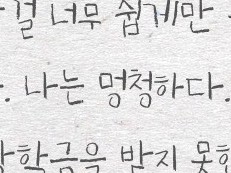 걸 너무 쉽게만
. 나는 멍청하다.
학금을 받지 못